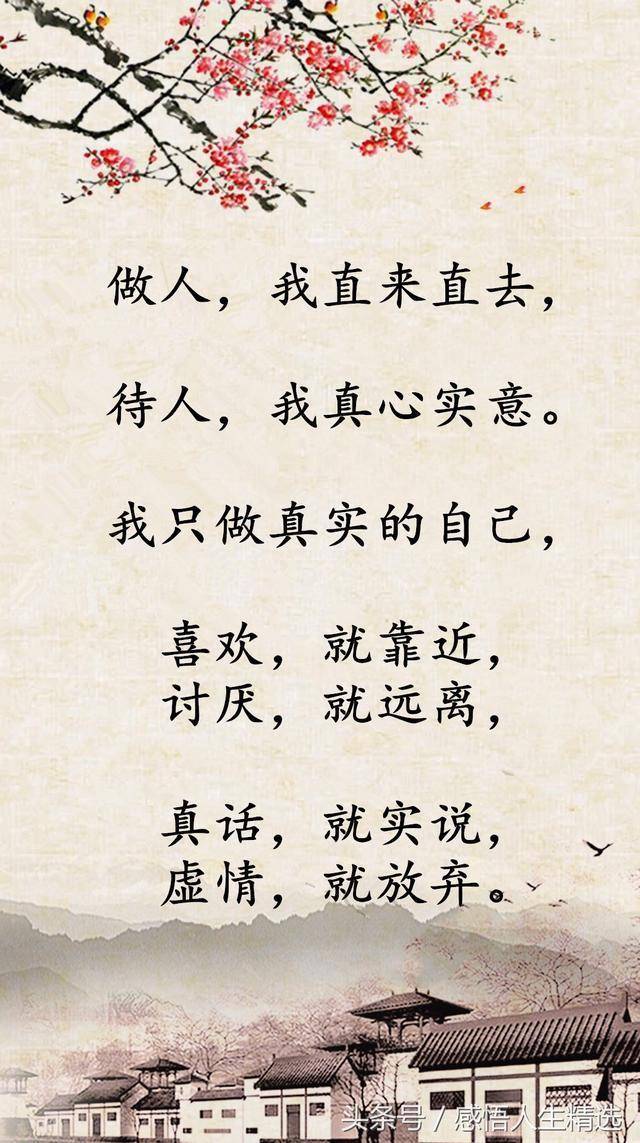 做人，我直来直去，
待人，我真心实意。
我只做真实的自己，
喜欢，就靠近，
讨厌，就远离，
真话，就实说，
虚情，就放弃。
头条号/感悟人生精选